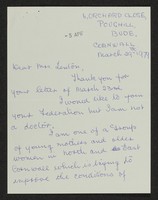 ORCHARD CLOSE,
POUGHILL
BUDE.
CORNWALL
March 25th 1979
- 3 APR
Dear Mrs
Thank you for
your letter of March 22nd.
I would like to join
your Federation but I am not
a doctor.
I am one of a group
of young mothers and older
women in north and East
Cornwall which is trying to
improve the conditions of